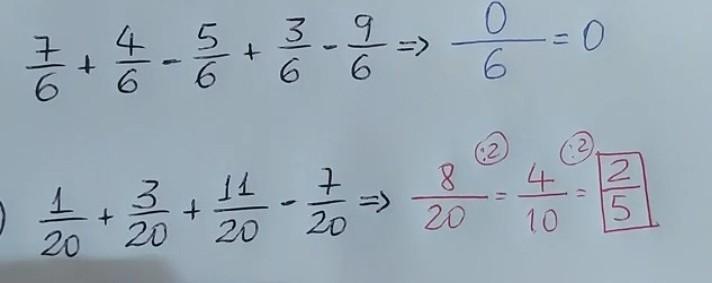 7/6 + 4/6 - 5/6 + 3/6 - 9/6 => 0/6 = 0
) 1/20 + 3/20 + 11/20 - 7/20 => 8/20 :2 = 4/10 :2 = 2/5